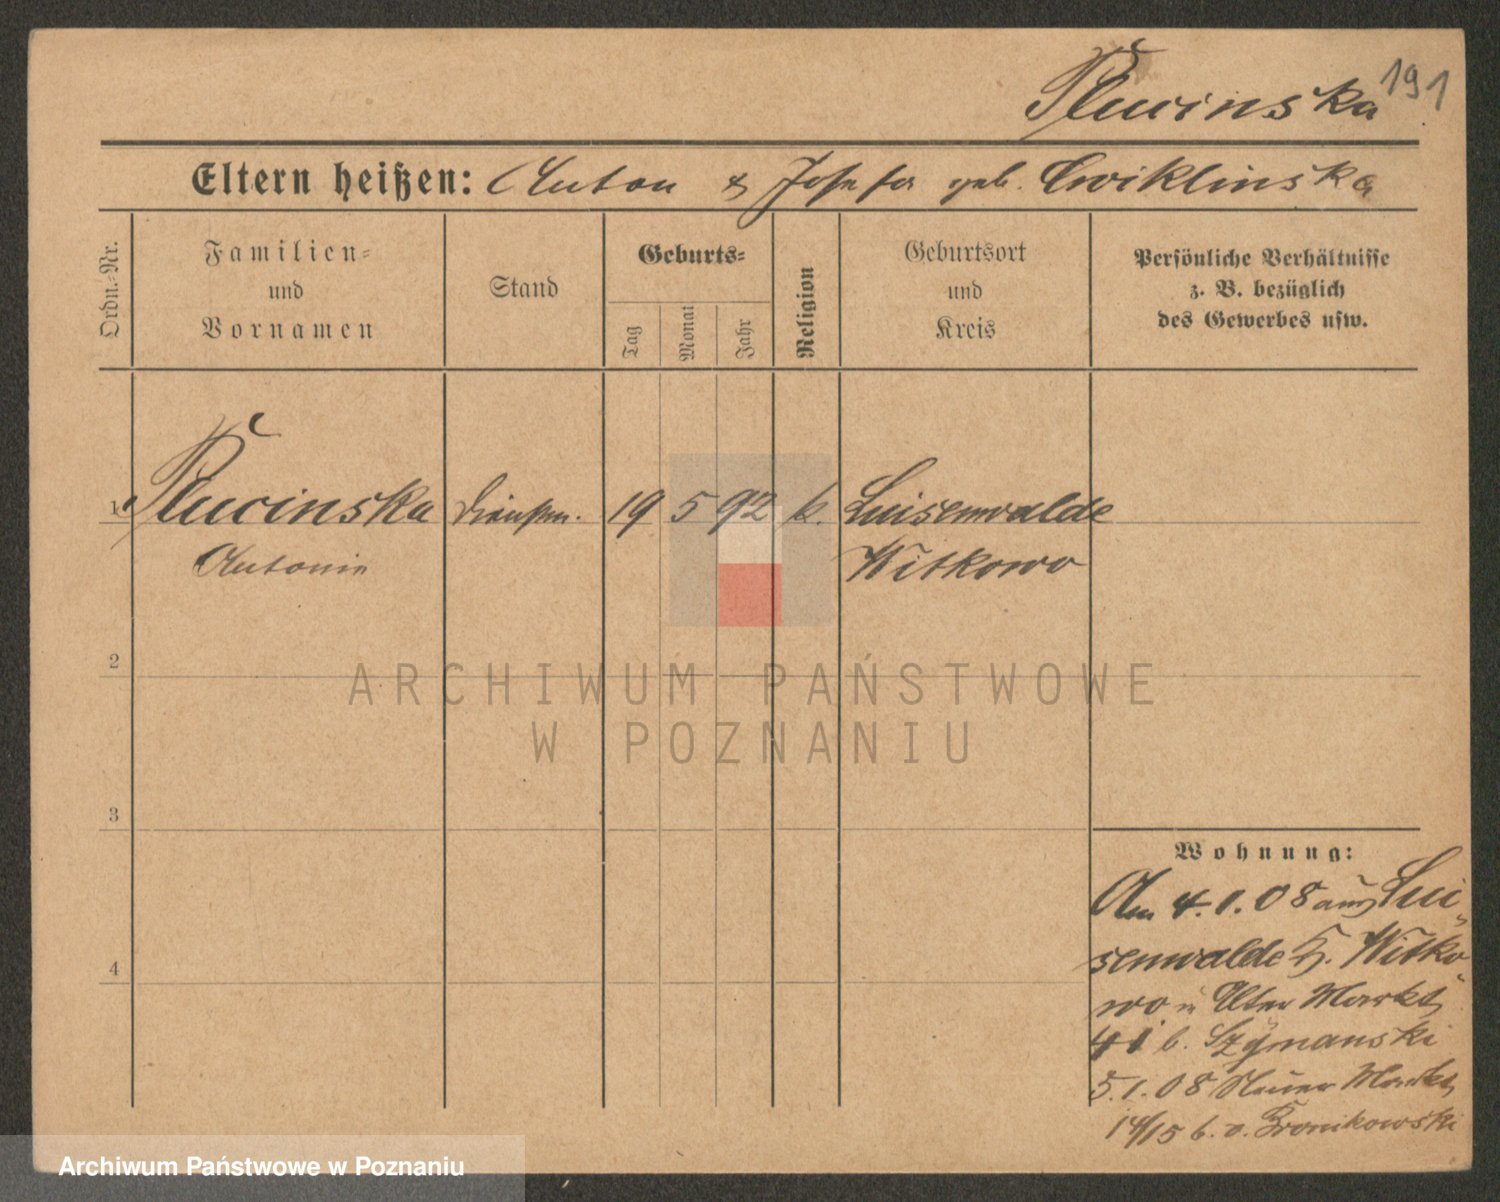 Plucinska
191
Eltern heißen: Anton & Josefa geb. Cwiklinska
Ordn.-Nr.
Familien-
und
Vornamen
Stand
Geburts-
Tag
Monat
Jahr
Religion
Geburtsort
und
Kreis
Persönliche Verhältnisse
z. B. bezüglich
des Gewerbes usw.
1 Plucinska 19 5 92 k. Luisenwalde
Antonie Witkowo
2
3
4
Wohnung:
Am 4.1.08 aus Lui-
senwalde K. Witko-
wo n Alter Markt
41 b. Szymanski
5.1.08 Neuer Markt
14/15 b. v. Bronikowski
ARCHIWUM PAŃSTWOWE
W POZNANIU
Archiwum Państwowe w Poznaniu